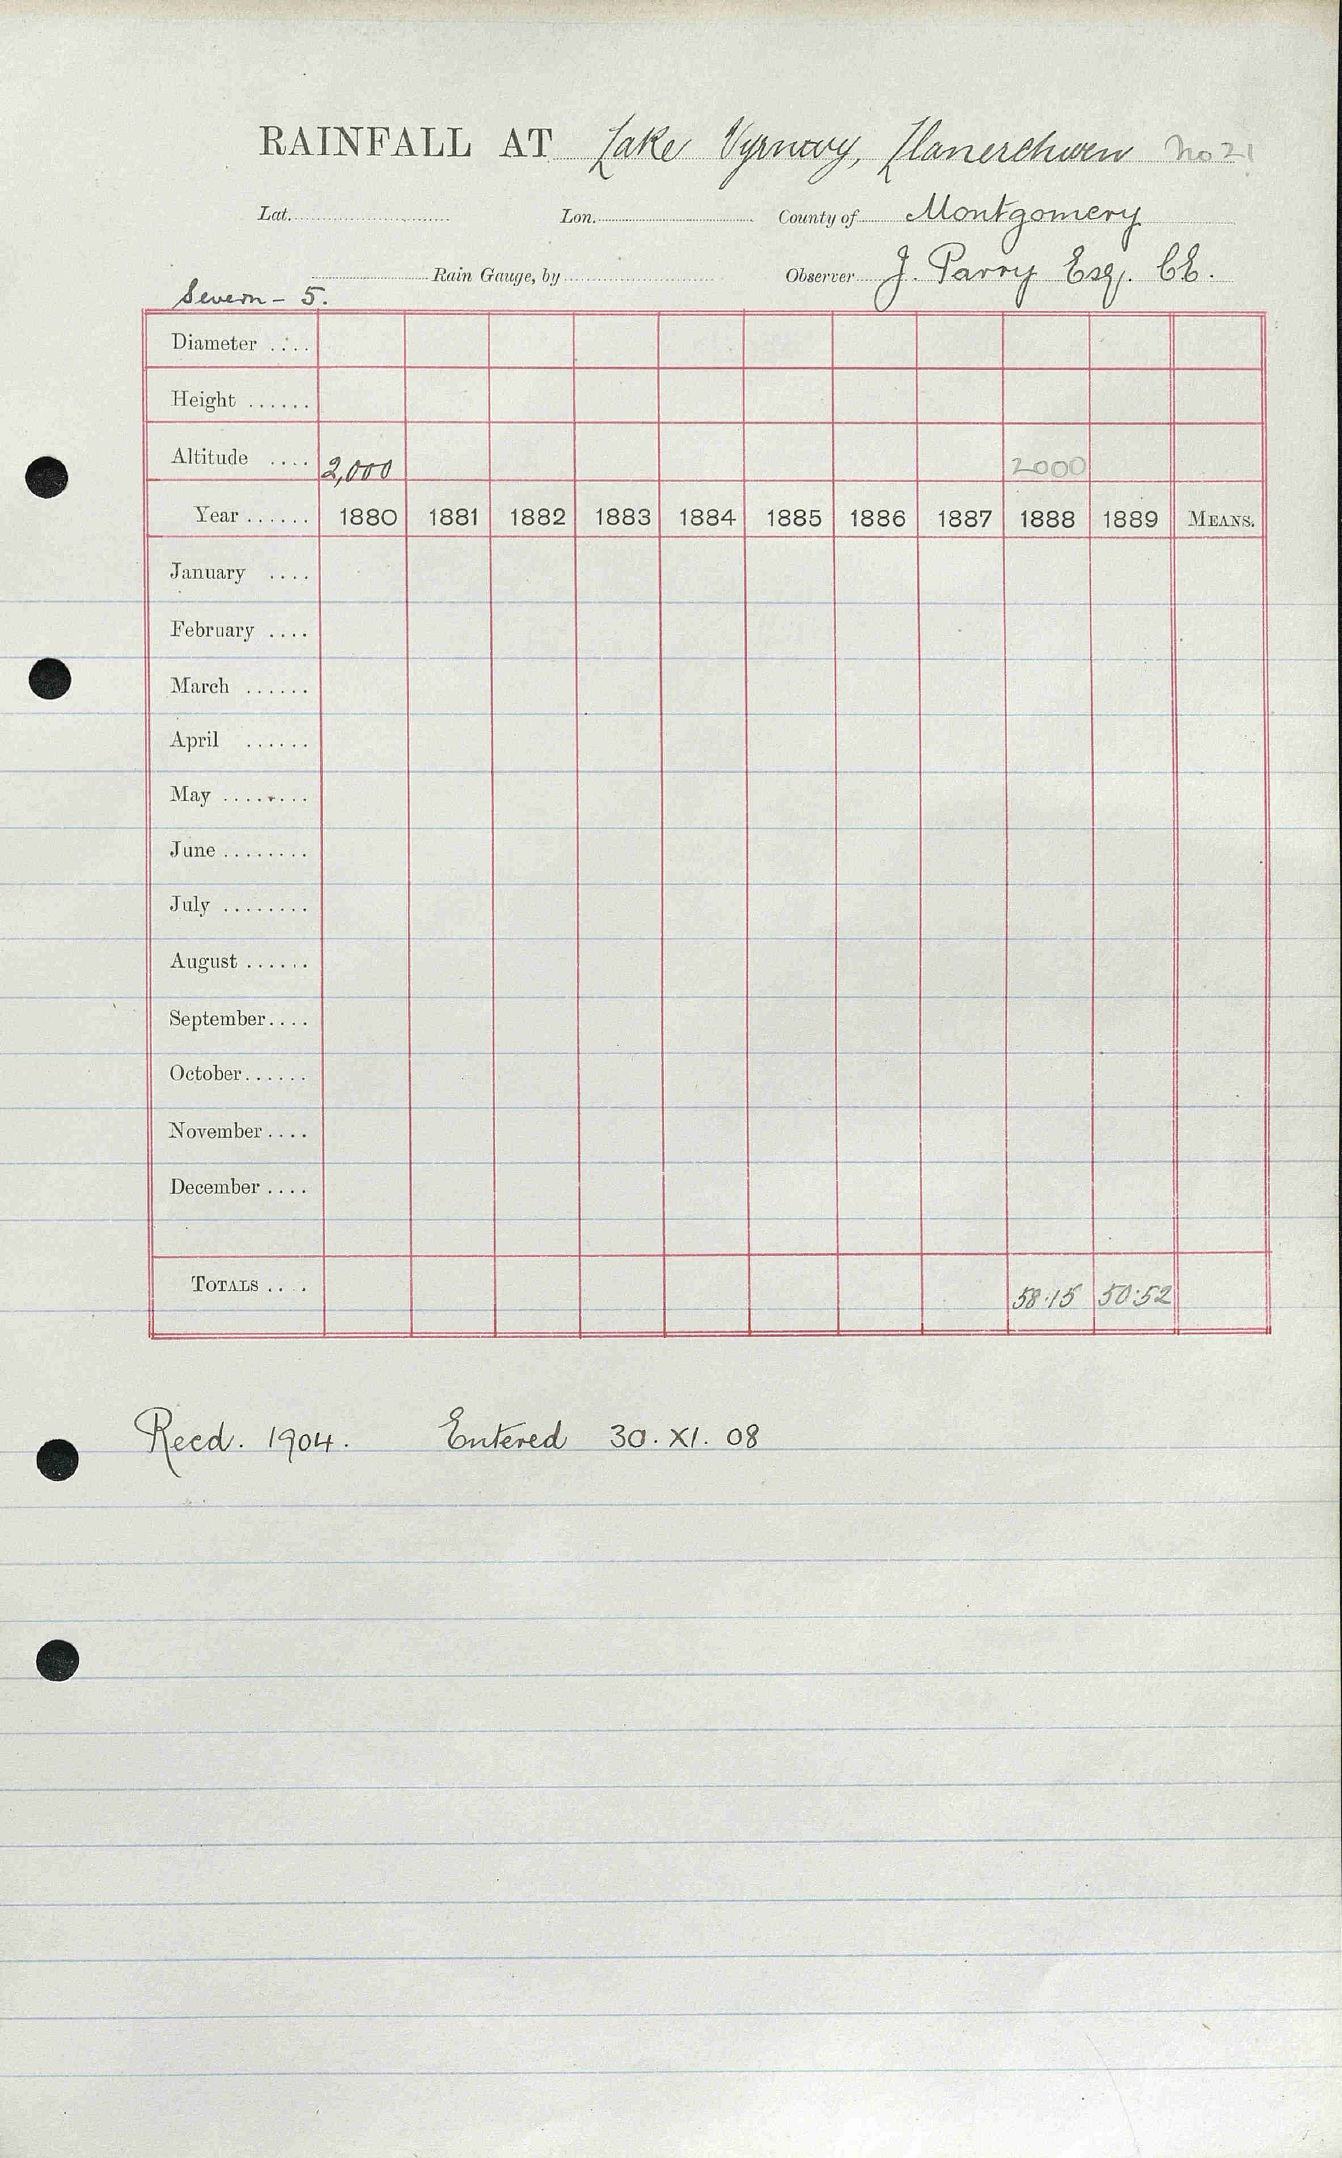 RAINFALL AT Lake Vyrnwy, Llanerchwen No 21
Lat. Lon. County of Montgomery
Rain Gauge, by Observer J. Parry Esq. CE.
Severn - 5.
Diameter ....
Height ......
Altitude .... 2,000 2000
Year ...... 1880 1881 1882 1883 1884 1885 1886 1887 1888 1889 MEANS.
January ....
February ....
March ......
April ......
May ........
June ........
July ........
August ......
September ....
October ......
November ....
December ....
TOTALS .... 58.15 50.52
Recd. 1904. Entered 30. XI. 08